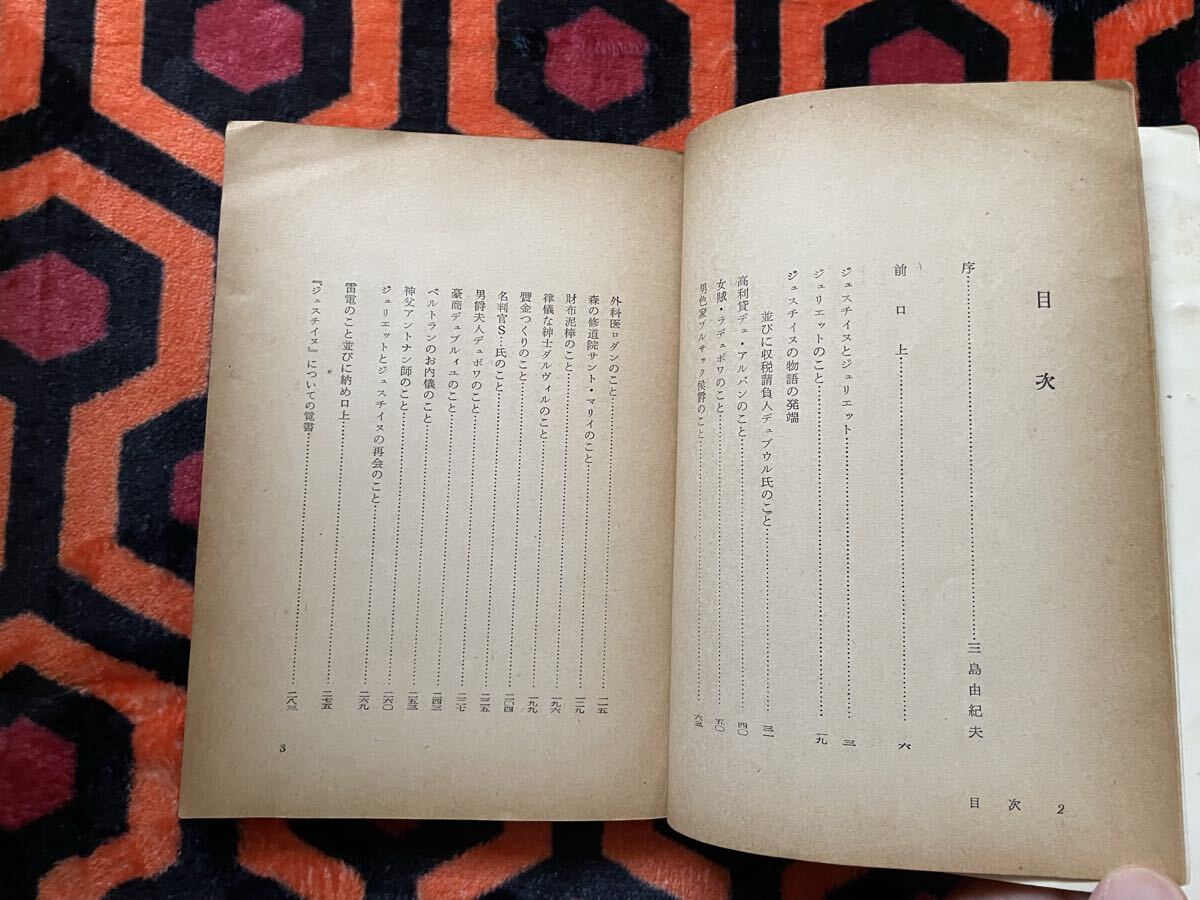 目次
序……三島由紀夫
前口上……六
ジュスチイヌとジュリエット……三
ジュリエットのこと……一九
ジュスチイヌの物語の発端
並びに収税請負人デュブウル氏のこと……三一
高利貸デュ・アルパンのこと……四〇
女賊・ラデュボワのこと……五〇
男色家ブルサック侯爵のこと……六三
目次 2
外科医ロダンのこと……一一五
森の修道院サント・マリイのこと……一三九
財布泥棒のこと……一九六
律儀な紳士ダルヴィルのこと……一九九
贋金つくりのこと……
名判官S…氏のこと……二〇四
男爵夫人デュボワのこと……二二五
豪商デュブルイエのこと……二三七
ベルトランのお内儀のこと……二四三
神父アントナン師のこと……二五三
ジュリエットとジュスチイヌの再会のこと……二六〇
雷電のこと並びに納め口上……二七五
『ジュスチイヌ』についての覚書……二八三
3